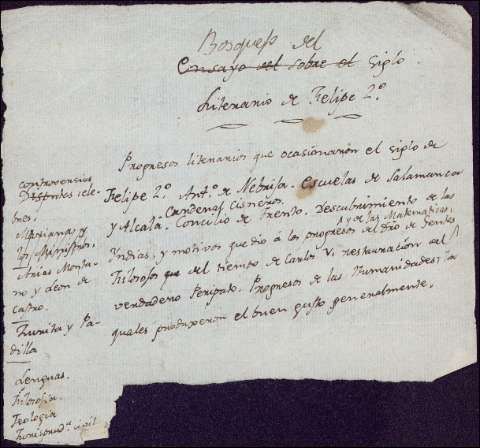 Bosquejo del
Ensayo del sobre el Siglo
Literario de Felipe 2.º
Progresos literarios que ocasionaron el siglo de
Felipe 2.º Ant.º de Nebrisa. Escuelas de Salamanca
y Alcala. Cardenal Cisneros. Concilio de Trento. Descubrimiento de las
Indias, y motivos que dio á los progresos del dro de Gentes
y de las Matematicas.
Filosofos que del tiempo de Carlos V. restauracion del
verdadero Peripato. Progresos de las Humanidades: las
quales produxeron el buen gusto generalmente.
controversias
Disputas cele-
bres.
Marianas y
los Ministros.
Arias Monta-
no y Leon de
Castro.
Zurita y Pa-
dilla
Lenguas.
Filosofia.
Teologia
civil